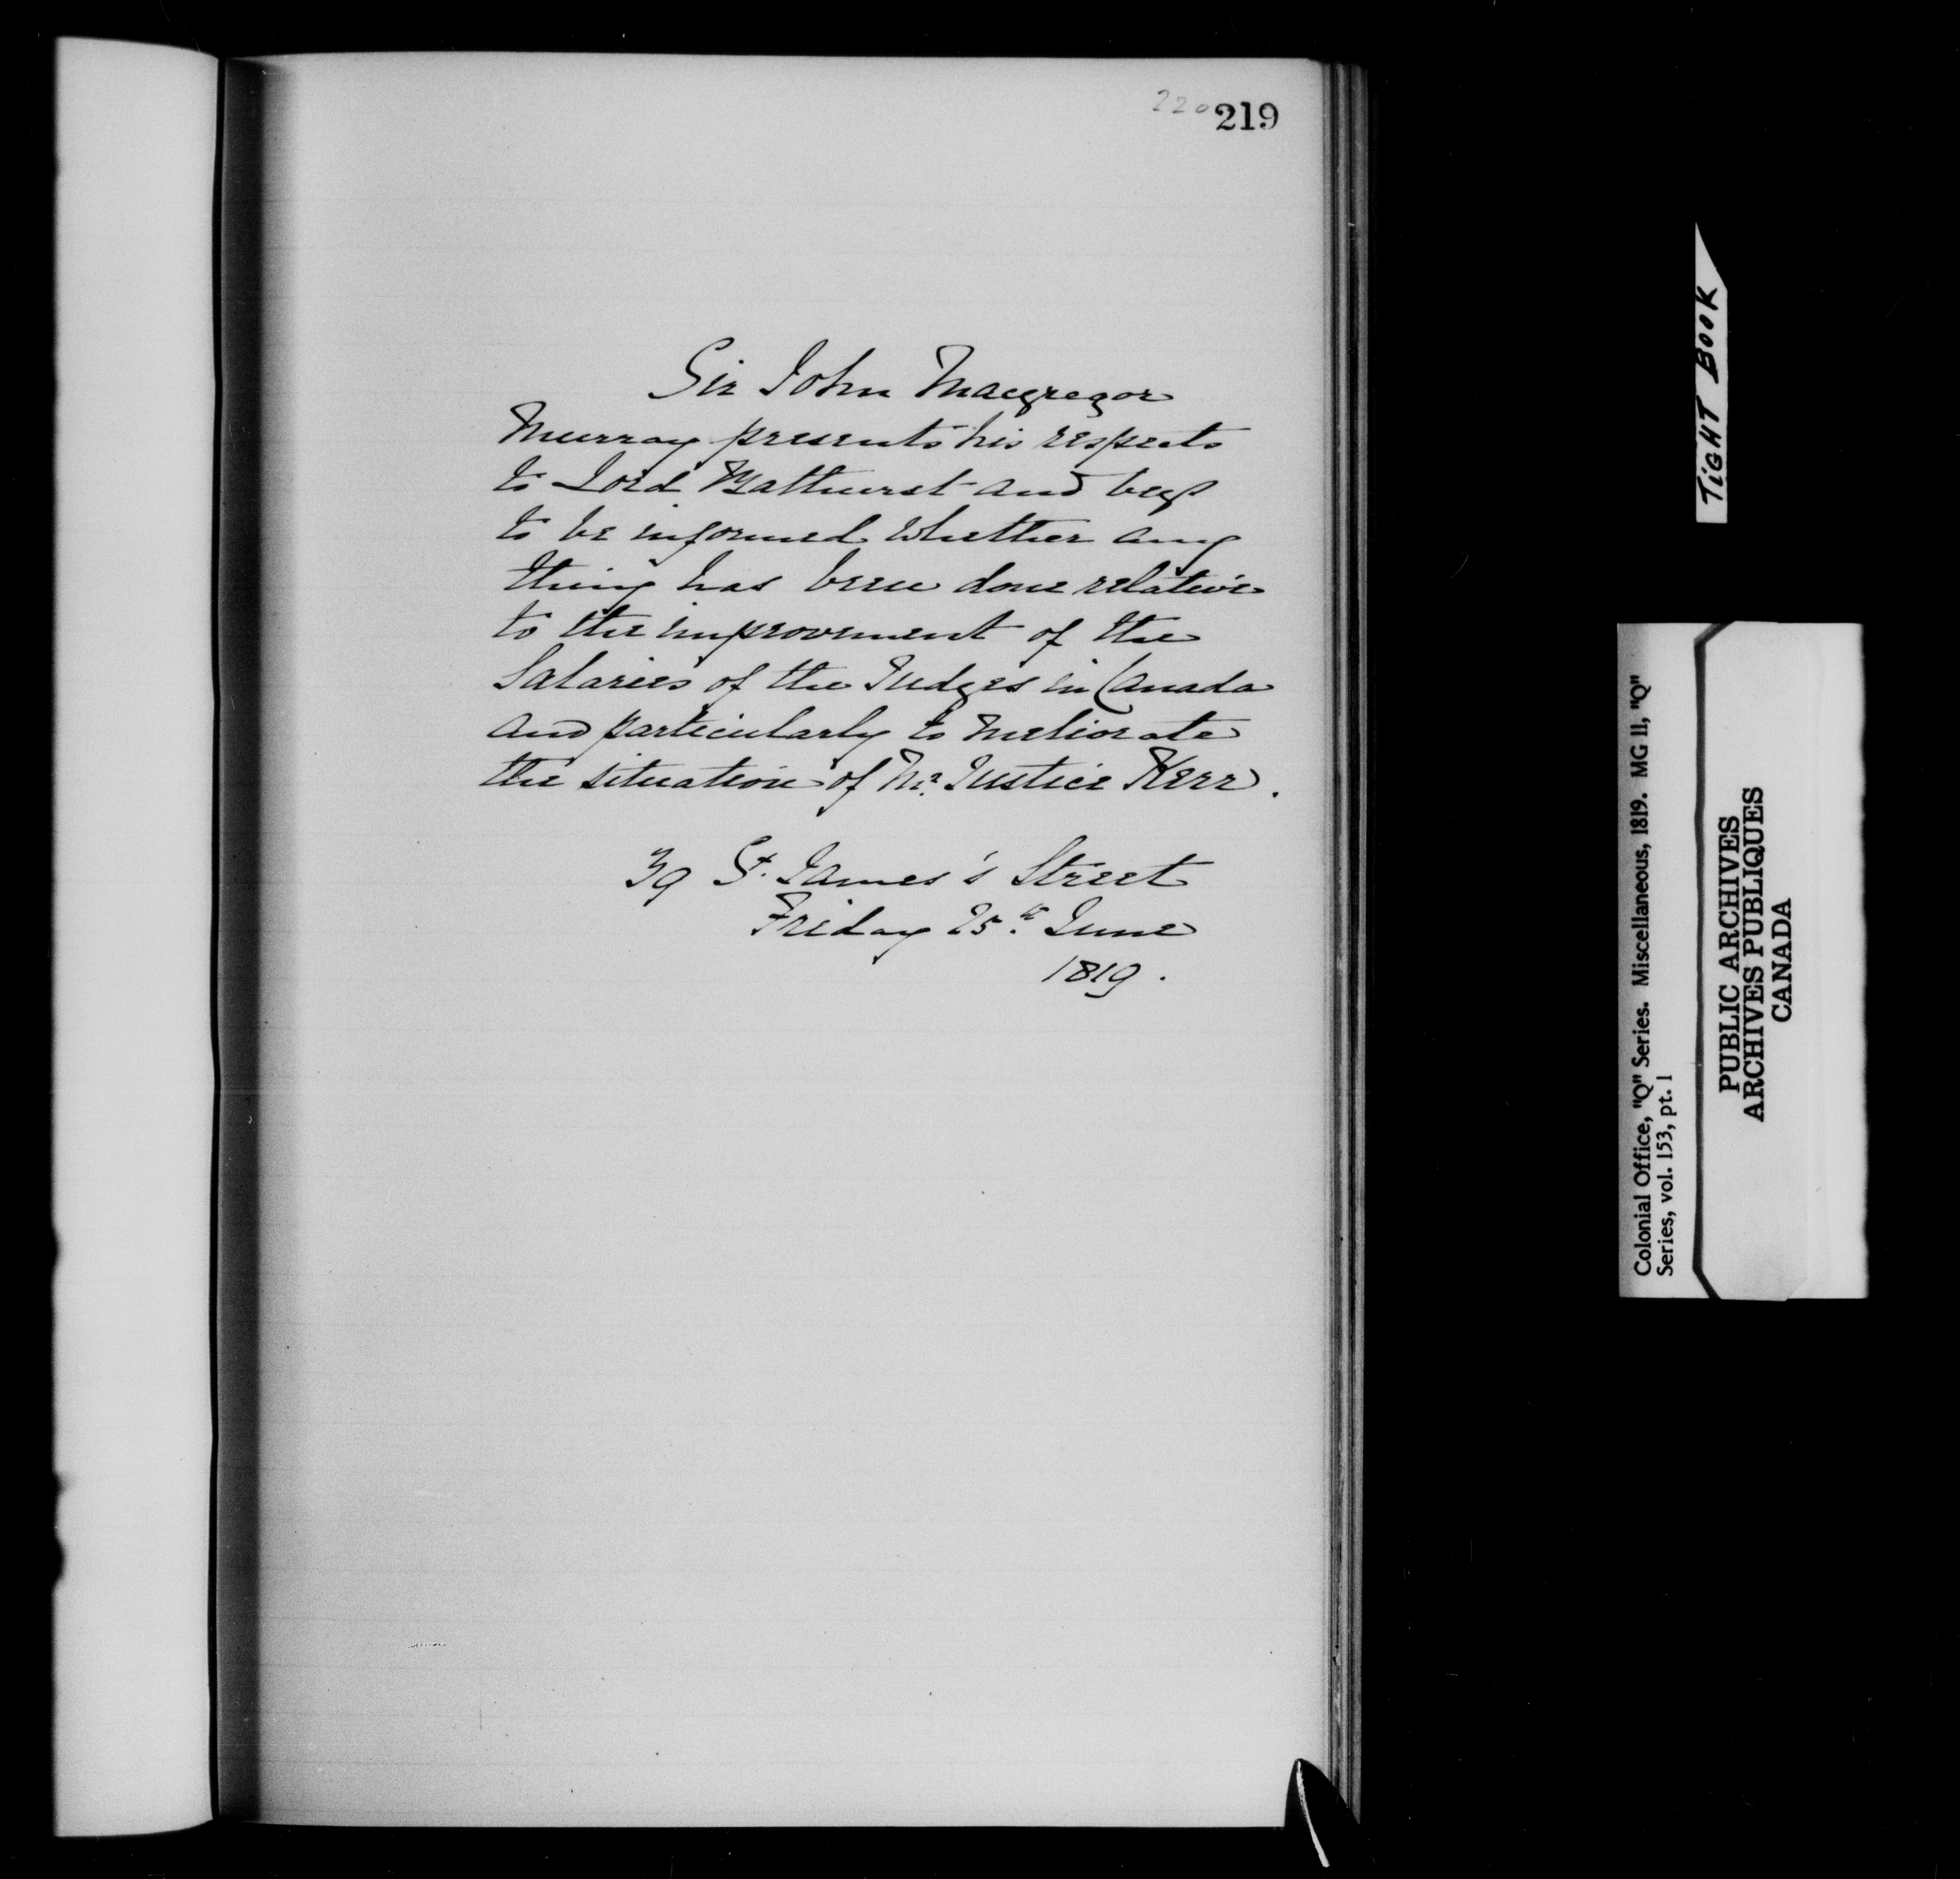 220 219
Sir John Macgregor
Murray presents his respects
to Lord Bathurst and begs
to be informed whether any
thing has been done relative
to the improvement of the
Salaries of the Judges in Canada
and particularly to meliorate
the situation of Mr. Justice Kerr.
39 St. James's Street
Friday 25th June
1819.
TIGHT BOOK
Colonial Office, "Q" Series. Miscellaneous, 1819. MG 11, "Q"
Series, vol. 153, pt. 1
PUBLIC ARCHIVES
ARCHIVES PUBLIQUES
CANADA